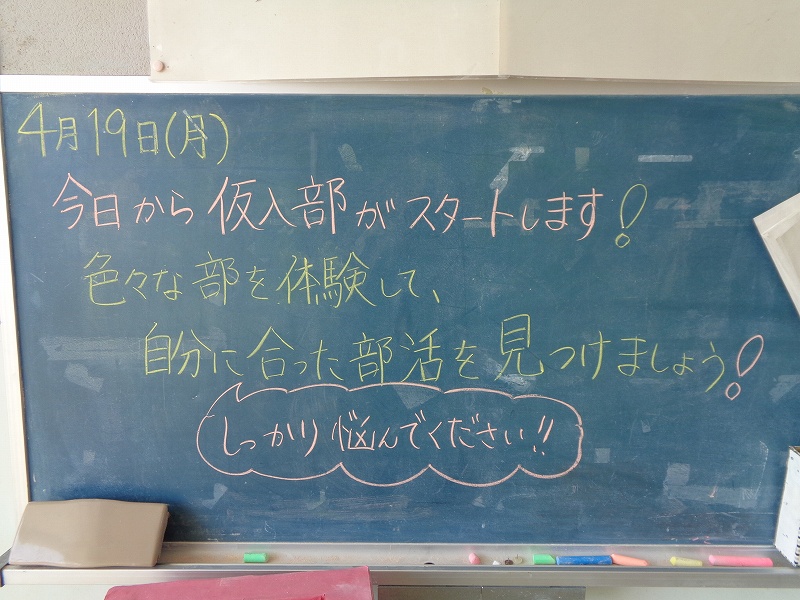 4月19日(月)
今日から仮入部がスタートします!
色々な部を体験して、
自分に合った部活を見つけましょう!
しっかり悩んでください!!